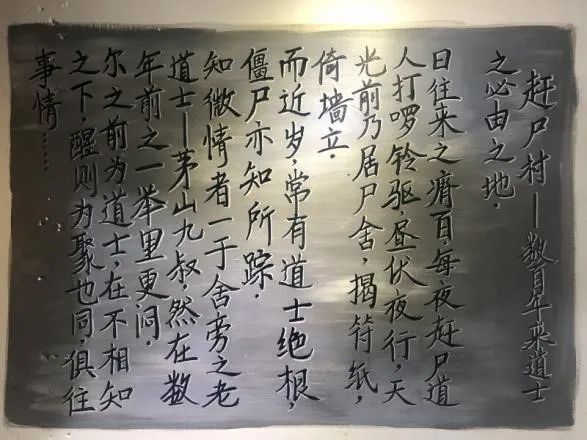 赶尸村——数百年来道士
之必由之地，
日往来之瘠百，每夜赶尸道
人打啰铃驱，昼伏夜行，天
光前乃居尸舍，揭符纸，
倚墙立。
而近岁，常有道士绝根，
僵尸亦知所踪。
知微情者一于舍旁之老
道士—茅山九叔，然在数
年前之一举里更闷，
尔之前为道士，在不相知
之下，醒则为聚也同，俱往
事情……